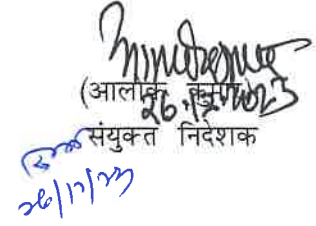 (आलोक कुमार)
26.12.2023
संयुक्त निदेशक
26/12/23